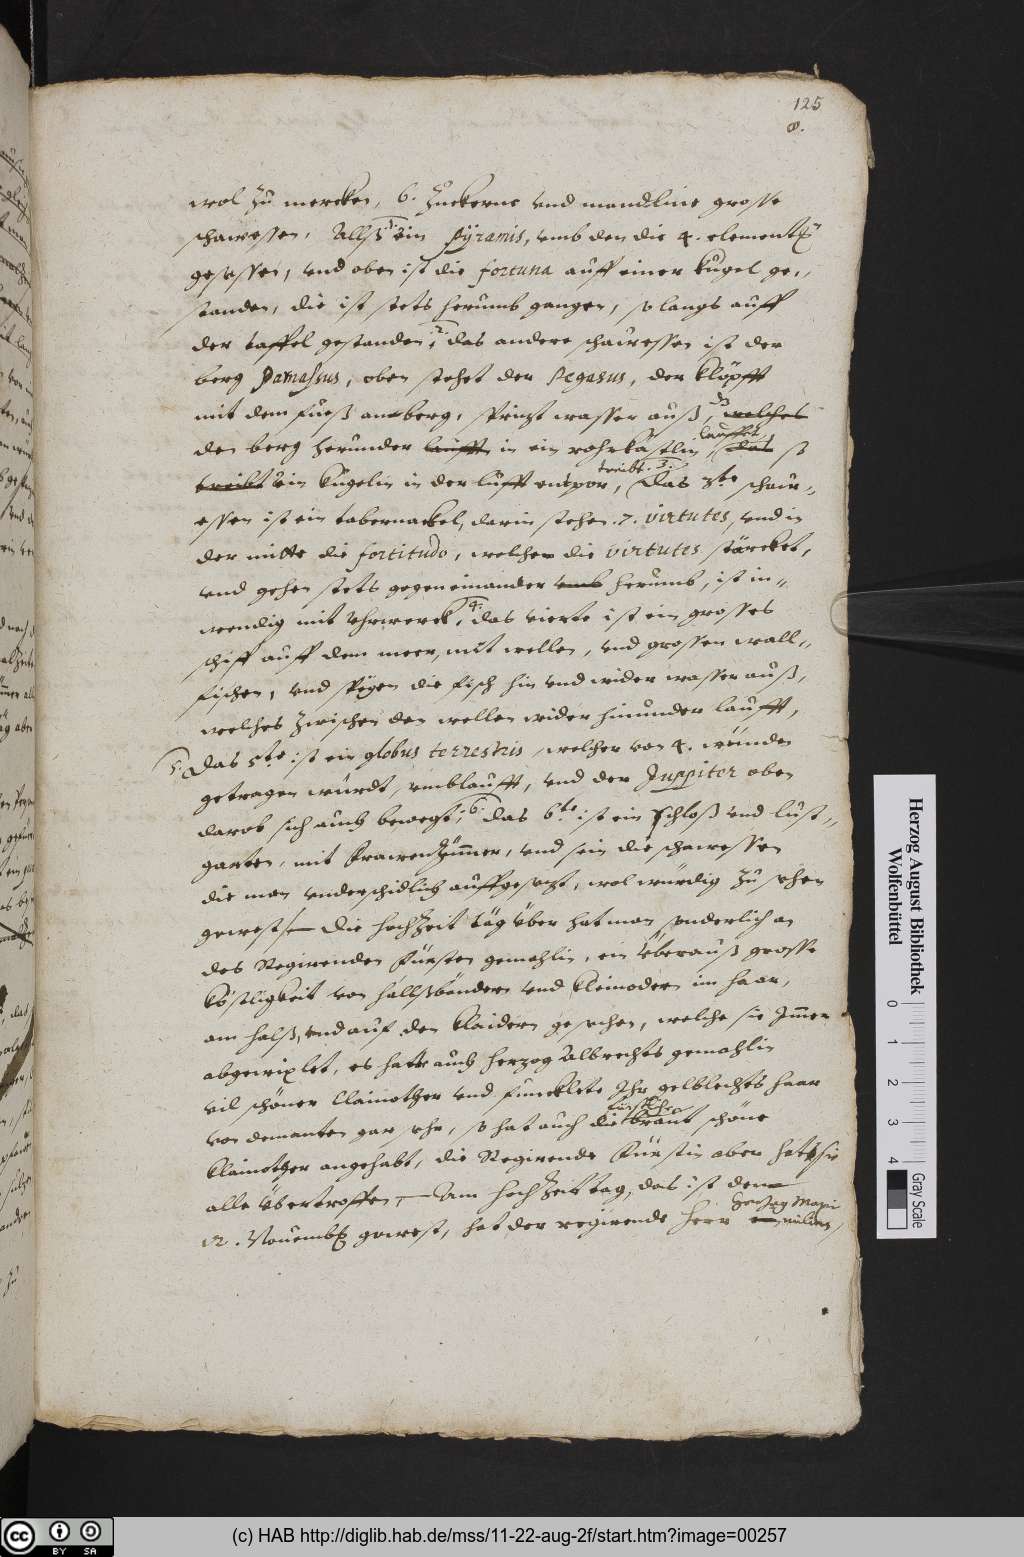 125
8.
wol zu mercken, 6. Zuckerne vnd mandline grosse
schawessen, Allß 1. ein Pyramis, vmb den die 4. element
gesessen, vnd oben ist die fortuna auff einer kugel ge¬
standen, die ist stets herumb gangen, so langs auff
der taffel gestanden, 2. das andere schawessen ist der
berg Parnassus, oben stehet der Pegasus, der klöpfft
mit dem fueß am berg, Sprizt wasser auß, welches
den berg herunder laufft in ein rohrkästlin, lauffet, das
treibt. 3.
treibt ein kugelin in der lufft entpor, Das 3te schaw¬
essen ist ein tabernackel, darin stehen 7. virtutes, vnd in
der mitte die fortitudo, welche die virtutes stärcket,
vnd gehen stets gegen einander vmb herumb, ist in¬
wendig mit vhrwerck, 4. das vierte ist ein grosses
schiff auff dem meer, mit wellen, vnd grossen wall¬
fischen, vnd speyen die fisch hin vnd wider wasser auß,
welches zwischen den wellen wider hinunder laufft,
5. Das 5te ist ein globus terrestris, welcher von 4. winden
getragen würdt, vmblaufft, vnd der Juppiter oben
darob sich auch bewegt, 6. das 6te ist ein schloß vnd lust¬
garten, mit Frawenzimmer, vnd sein die schawessen
die man vnderschidlich auffgesezt, wol würdig zu sehen
gewest. Die hochzeit täg über hat man sonderlich an
des Regirenden Fürsten gemahlin, ein überauß grosse
köstligkeit von hallßbändern vnd kleinodern im haar,
am halß, vnd auf den klaidern gesehen, welche sie Immer
abgewixlet, es hatt auch herzog Albrechts gemahlin
vil schöner klainother vnd funcklete Ihr gelblechts haar
von demanten gar sehr, so hat auch die fürstliche braut schöne
klainother angehabt, die Regirende Fürstin aber hat sie
alle übertroffen, Am hochzeit tag, das ist den
12. Nouemb gewest, hat der regirende herr herzog Maxi
milian,
Herzog August Bibliothek
Wolfenbüttel
0 1 2 3 4
Gray Scale
CC BY SA
(c) HAB http://diglib.hab.de/mss/11-22-aug-2f/start.htm?image=00257